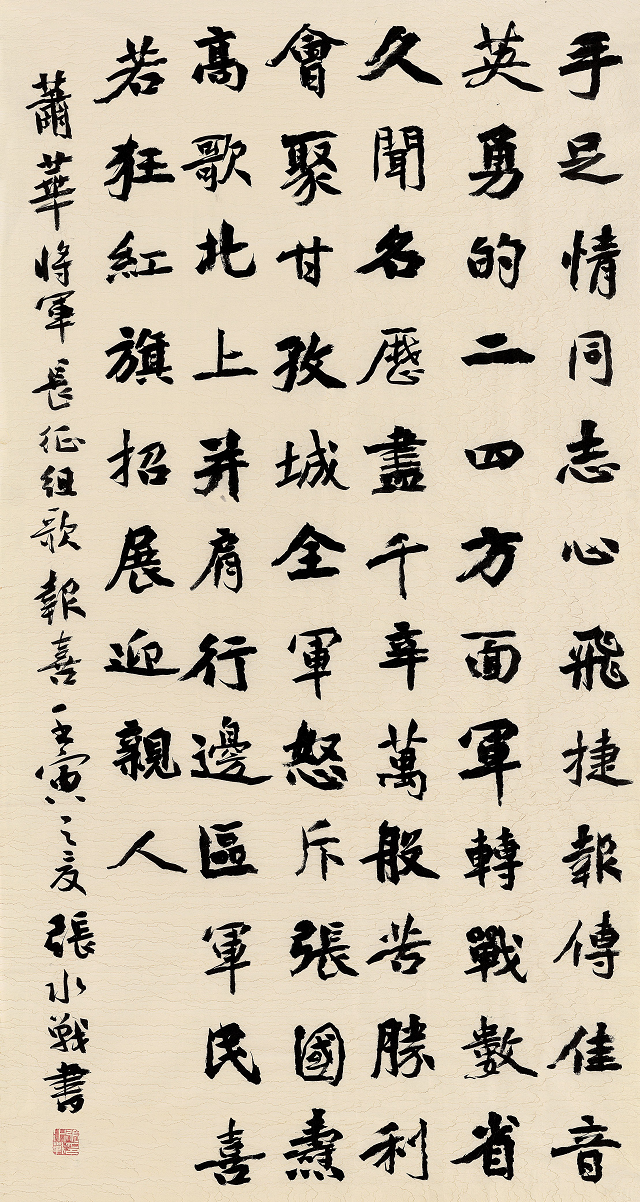 手足情同志心飛捷報傳佳音
英勇的二四方面軍轉戰數省
久聞名歷盡千辛萬般苦勝利
會聚甘孜城全軍怒斥張國燾
高歌北上并肩行邊區軍民喜
若狂紅旗招展迎親人
蕭華将軍長征組歌報喜壬寅之夏張水戰書